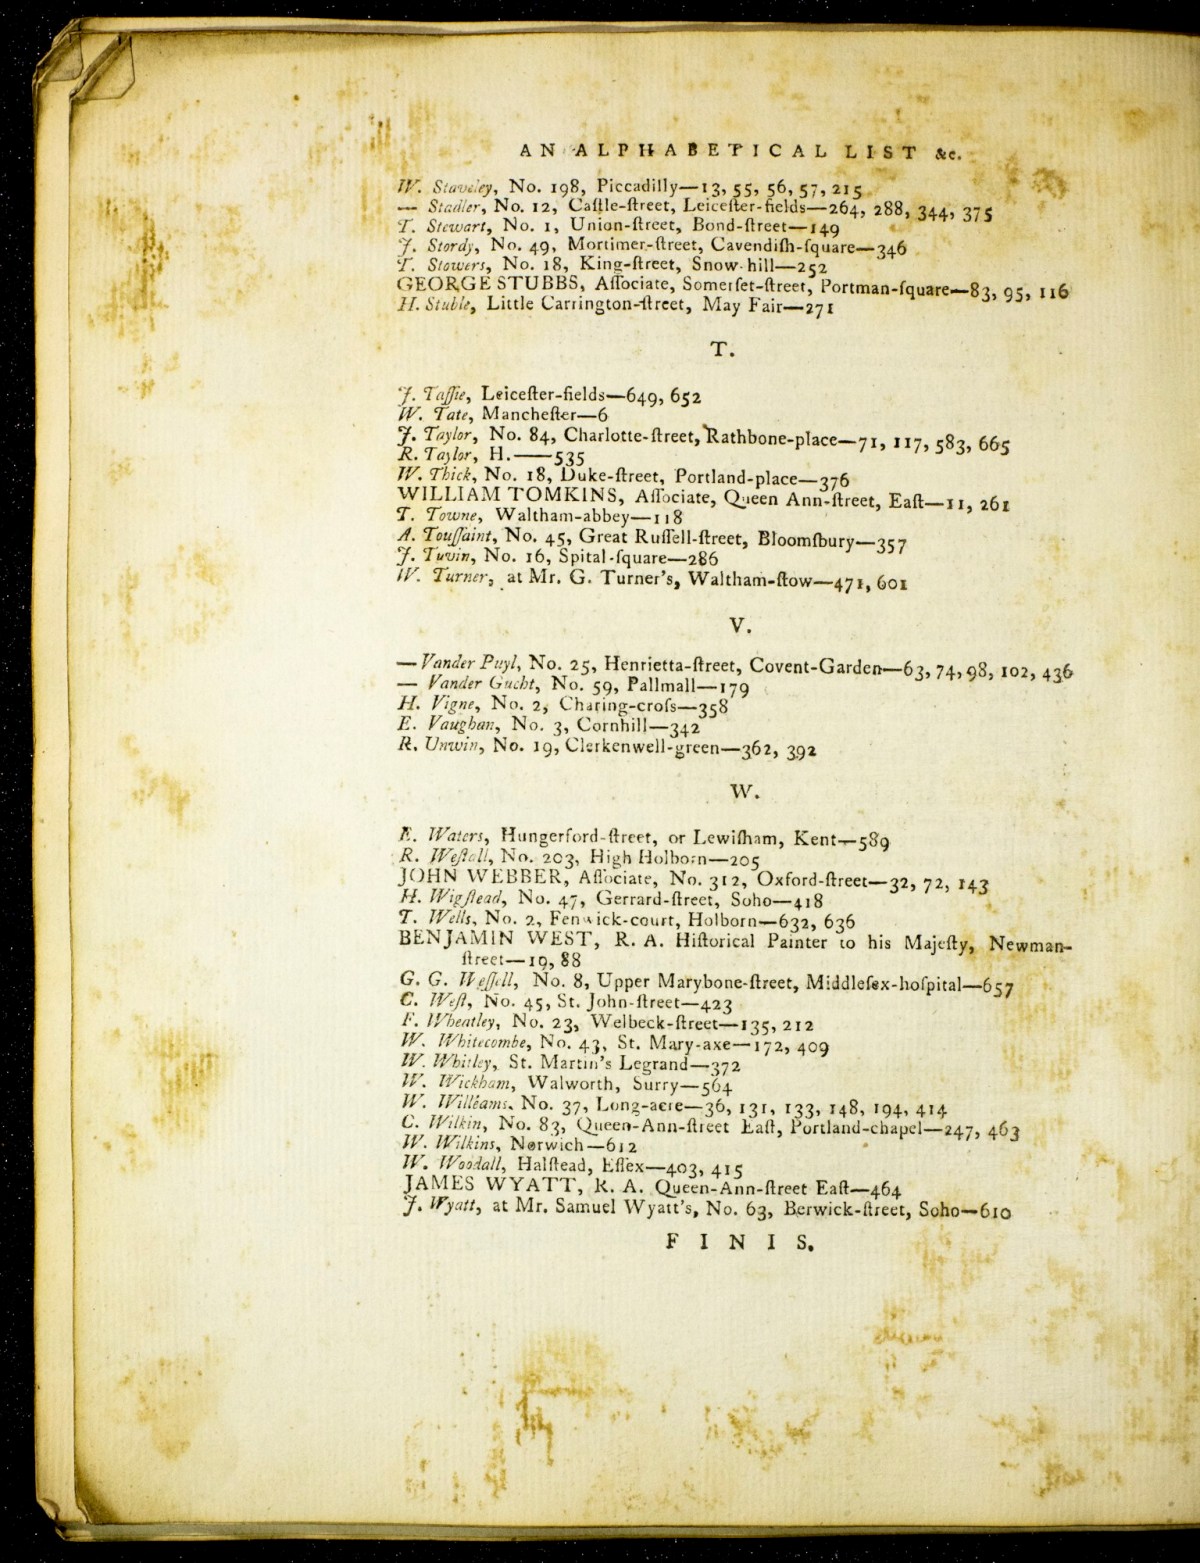 AN ALPHABETICAL LIST &c.
W. Staveley, No. 198, Piccadilly—13, 55, 56, 57, 215
— Stadler, No. 12, Caſtle-ſtreet, Leiceſter-fields—264, 288, 344, 375
T. Stewart, No. 1, Union-ſtreet, Bond-ſtreet—149
J. Stordy, No. 49, Mortimer-ſtreet, Cavendiſh-ſquare—346
T. Stowers, No. 18, King-ſtreet, Snow-hill—252
GEORGE STUBBS, Aſſociate, Somerſet-ſtreet, Portman-ſquare—83, 95, 116
H. Stuble, Little Carrington-ſtreet, May Fair—271
T.
J. Taſſie, Leiceſter-fields—649, 652
W. Tate, Mancheſter—6
J. Taylor, No. 84, Charlotte-ſtreet, Rathbone-place—71, 117, 583, 665
R. Taylor, H.——535
W. Thick, No. 18, Duke-ſtreet, Portland-place—376
WILLIAM TOMKINS, Aſſociate, Queen Ann-ſtreet, Eaſt—11, 261
T. Towne, Waltham-abbey—118
A. Touſſaint, No. 45, Great Ruſſell-ſtreet, Bloomſbury—357
J. Tuvin, No. 16, Spital-ſquare—286
W. Turner, at Mr. G. Turner's, Waltham-ſtow—471, 601
V.
— Vander Puyl, No. 25, Henrietta-ſtreet, Covent-Garden—63, 74, 98, 102, 436
— Vander Gucht, No. 59, Pallmall—179
H. Vigne, No. 2, Charing-croſs—358
E. Vaughan, No. 3, Cornhill—342
R. Unwin, No. 19, Clerkenwell-green—362, 392
W.
E. Waters, Hungerford-ſtreet, or Lewiſham, Kent—589
R. Weſtall, No. 203, High Holborn—205
JOHN WEBBER, Aſſociate, No. 312, Oxford-ſtreet—32, 72, 143
H. Wigſtead, No. 47, Gerrard-ſtreet, Soho—418
T. Wells, No. 2, Fenwick-court, Holborn—632, 636
BENJAMIN WEST, R. A. Hiſtorical Painter to his Majeſty, Newman-
ſtreet—19, 88
G. G. Weſſell, No. 8, Upper Marybone-ſtreet, Middleſex-hoſpital—657
C. Weſt, No. 45, St. John-ſtreet—423
F. Wheatley, No. 23, Welbeck-ſtreet—135, 212
W. Whitecombe, No. 43, St. Mary-axe—172, 409
W. Whitley, St. Martin's Legrand—372
W. Wickham, Walworth, Surry—564
W. Williams, No. 37, Long-acre—36, 131, 133, 148, 194, 414
C. Wilkin, No. 83, Queen-Ann-ſtreet Eaſt, Portland-chapel—247, 463
W. Wilkins, Norwich—612
W. Woodall, Halſtead, Eſſex—403, 415
JAMES WYATT, R. A. Queen-Ann-ſtreet Eaſt—464
J. Wyatt, at Mr. Samuel Wyatt's, No. 63, Berwick-ſtreet, Soho—610
FINIS.